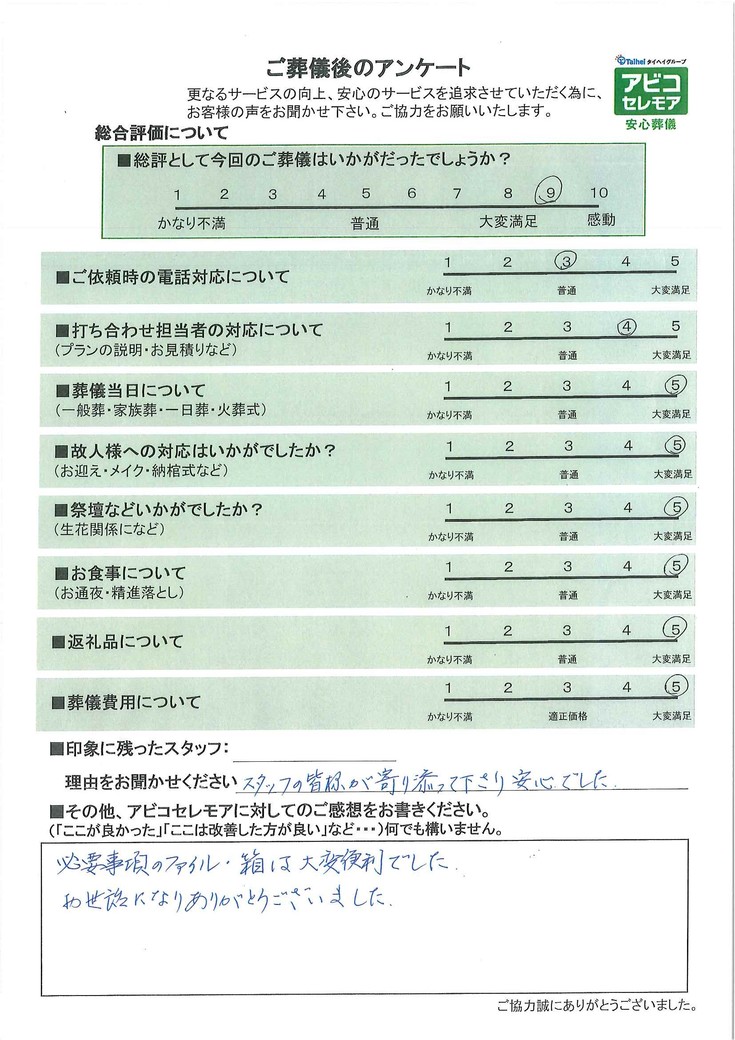 ご葬儀後のアンケート
Taihei タイヘイグループ
アビコ
セレモア
安心葬儀
更なるサービスの向上、安心のサービスを追求させていただく為に、
お客様の声をお聞かせ下さい。ご協力をお願いいたします。
総合評価について
■総評として今回のご葬儀はいかがだったでしょうか?
1 2 3 4 5 6 7 8 9 10
かなり不満 普通 大変満足 感動
■ご依頼時の電話対応について
1 2 3 4 5
かなり不満 普通 大変満足
■打ち合わせ担当者の対応について
(プランの説明・お見積りなど)
1 2 3 4 5
かなり不満 普通 大変満足
■葬儀当日について
(一般葬・家族葬・一日葬・火葬式)
1 2 3 4 5
かなり不満 普通 大変満足
■故人様への対応はいかがでしたか?
(お迎え・メイク・納棺式など)
1 2 3 4 5
かなり不満 普通 大変満足
■祭壇などいかがでしたか?
(生花関係になど)
1 2 3 4 5
かなり不満 普通 大変満足
■お食事について
(お通夜・精進落とし)
1 2 3 4 5
かなり不満 普通 大変満足
■返礼品について
1 2 3 4 5
かなり不満 普通 大変満足
■葬儀費用について
1 2 3 4 5
かなり不満 適正価格 大変満足
■印象に残ったスタッフ:
理由をお聞かせください スタッフの皆様が寄り添って下さり安心でした.
■その他、アビコセレモアに対してのご感想をお書きください。
(「ここが良かった」「ここは改善した方が良い」など・・・)何でも構いません。
必要事項のファイル・箱は大変便利でした.
お世話になりありがとうございました.
ご協力誠にありがとうございました。